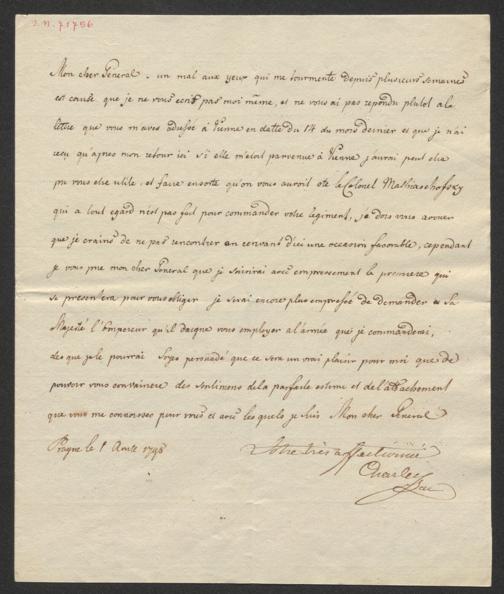 I.N. 71756
Mon cher General. un mal aux yeux qui me tourmente depuis plusieurs semaines
est cause que je ne vous ecris pas moi même, et ne vous ai pas repondu plutot a la
lettre que vous m'aves adressée à Vienne en datte du 14 du mois dernier et que je n'ai
reçu qu'apres mon retour ici si elle m'etoit parvenue à Vienne, j'aurai peut etre
pu vous etre utile, et faire ensorte qu'on vous auroit oté le Colonel Mathiaschofszky
qui a tout egard n'est pas fait pour commander votre regiment, je dois vous avouer
que je crains de ne pas rencontrer en ecrivant d'ici une occasion favorable, cependant
je vous prie mon cher General que je saisirai avec empressement la premiere qui
se presentera pour vous obliger je serai encore plus empressé de demander a Sa
Majesté l'Empereur qu'il daigne vous employer al'armée que je commanderai,
des que je le pourrai Soyes persuadé que ce sera un vrai plaisir pour moi que de
pouvoir vous convaincre des sentimens de la parfaite estime et de l'attachement
que vous me connoissez pour vous et avec les quels je suis Mon cher General
Prague le 1 Aoust 1798
Votre très affectionné
Charles